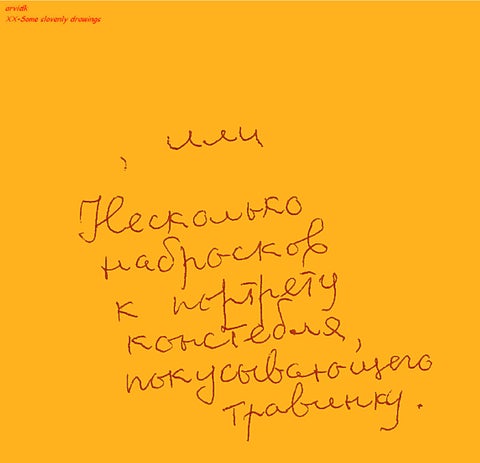 arvidk
XX-Some slovenly drawings
, или
Несколько
набросков
к портрету
констебля,
покусывающего
травинку.